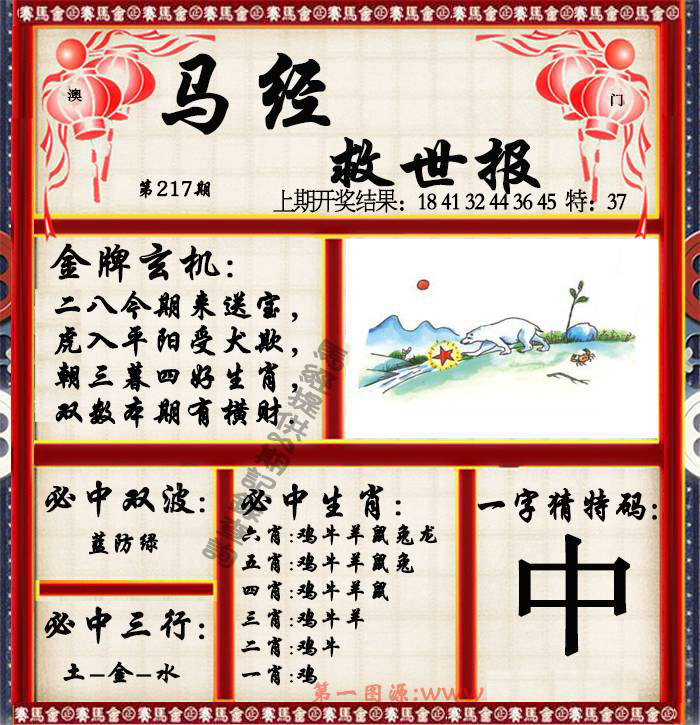 賽馬會 賽馬會 賽馬會 賽馬會 賽馬會 賽馬會 賽馬會 賽馬會
澳
门
马经
救世报
第217期
上期开奖结果：18 41 32 44 36 45 特：37
金牌玄机：
二八今期来送宝，
虎入平阳受犬欺，
朝三暮四好生肖，
双数本期有横财.
必中双波：
蓝防绿
必中三行：
土-金-水
必中生肖：
六肖:鸡牛羊鼠兔龙
五肖:鸡牛羊鼠兔
四肖:鸡牛羊鼠
三肖:鸡牛羊
二肖:鸡牛
一肖:鸡
一字猜特码：
中
第一图源:www